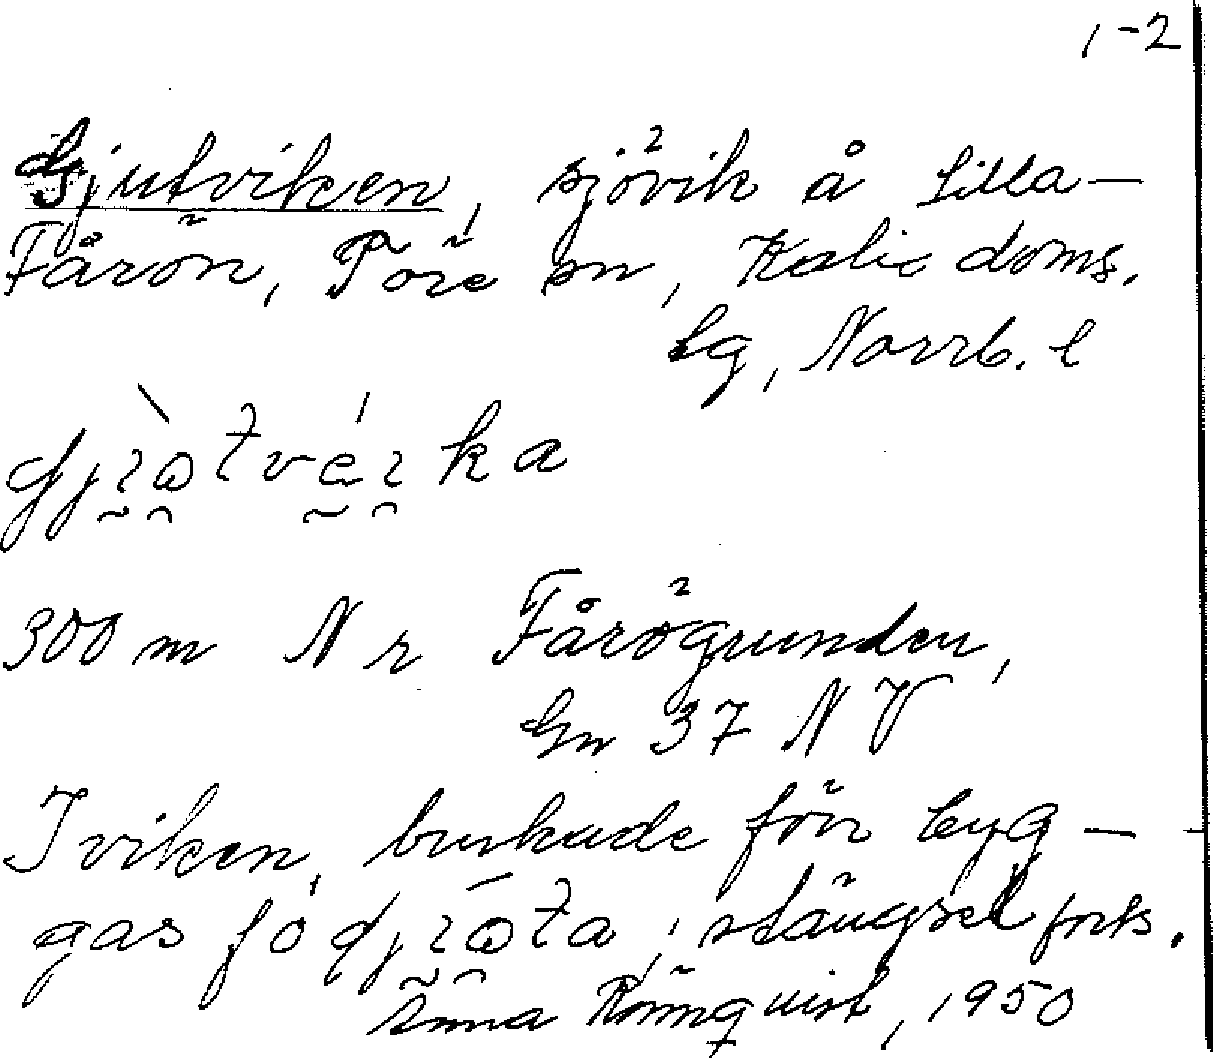 1-2
Gjutviken, sjövik å Lilla-
Fårön, Töre sn, Kalix doms.
lg, Norrb. l
300 m N r Fårögrunden,
Gn 37 NV
I viken, brukade förr byg-
gas fö ; stängsel forts.
Anna Rönnqvist, 1950